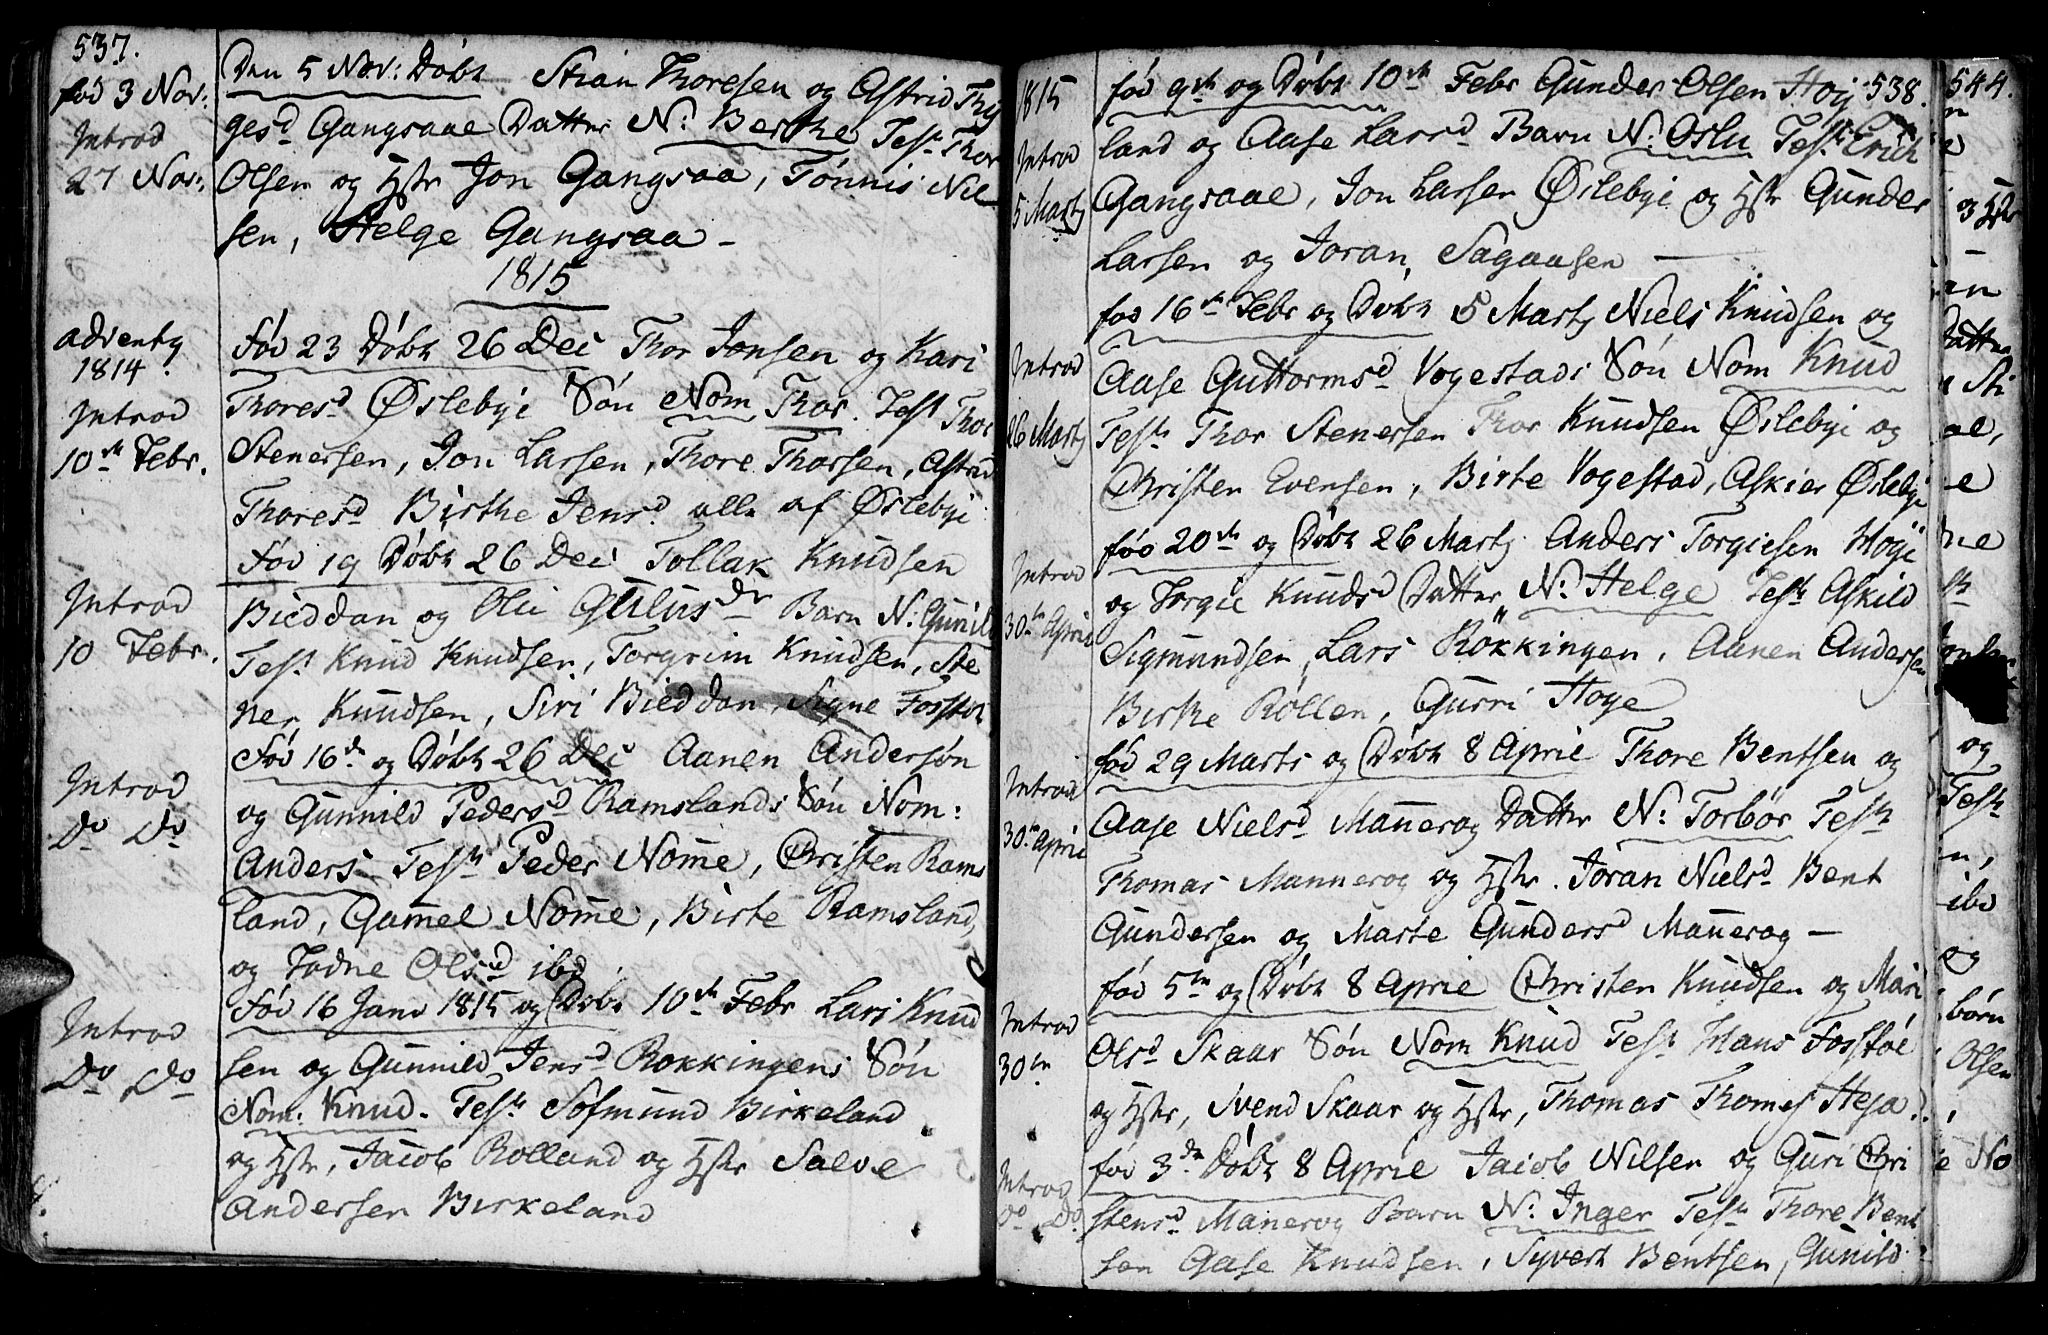 537.
fød 3 Nov:
Introd
27 Nov:
Den 5 Nov: Døbt Stian Thoresen og Astrid Thy
gesd Gangsaae Datter N: Berthe Test Thor
Olsen og Hstr Jon Gangsaa, Tønnis Niel
sen, Helge Gangsaa -
1815
adventy
1814.
Introd
10de Febr.
Fød 23 Døbt 26 Dec Thor Jonsen og Kari
Thoresd Øslebye Søn Nom Thor. Test Thor
Stenersen, Jon Larsen, Thore Thorsen, Astrid
Thoresd Birthe Jensd alle af Øslebye
Introd
10 Febr.
Fød 19 Døbt 26 Dec Tollak Knudsen
Bieddan og Oli Barn N: Gunild
Test Knud Knudsen, Torgrim Knudsen, Ste
ner Knudsen, Siri Bieddan, Signe Fosstøl
Introd
Do Do
Fød 16de og Døbt 26 Dec Aanen Andersøn
og Gunnild Pedersd Ramslands Søn Nom:
Anders - Test Peder Nome, Christen Rams
land, Gamel Nome, Birte Ramsland,
og Todne Olsd ibd
Introd
Do Do
Fød 16 Janv 1815 og Døbt 10de Febr Lars Knud
sen og Gunnild Jensd Rokkingens Søn
Nom: Knud. Test Sofmund Birkeland
og Hstr, Jacob Rolland og Hstr Salve
Andersen Birkeland
1815
Introd
5 Marty
538.
fød 9de og Døbt 10de Febr Gunder Olsen Høy
land og Aase Larsd Barn N: Oslu Test Erich
Gangsaae, Jon Larsen Øslebye og Hstr Gunder
Larsen og Joran Sagaasen
Introd
26 Marty
fød 16de Febr og Døbt 5 Marty Niels Knudsen og
Aase Guttormsd Vogestads Søn Nom Knud
Test Thor Stenersen Thor Knudsen Øslebye og
Christen Evensen, Birte Vogestad, Askier Øslebye
Introd
30te April
fød 20de og Døbt 26 Marty Anders Torgiesen Høye
og Torgie Knudsd Datter N: Helge Test Askild
Sigmundsen, Lars Røkkingen, Aanen Andersen
Birthe Rollen, Gurri Høye
Introd
30te April
fød 29 Marts og Døbt 8 April Thore Bentsen og
Aase Nielsd Mannerog Datter N: Torbør Test
Thomas Mannerog og Hstr. Joran Nielsd Bent
Gundersen og Marte Gundersd Mannerog -
Introd
30te
fød 5te og Døbt 8 April Christen Knudsen og Mari
Olsd Skaar Søn Nom Knud Test Hans Fosstøl
og Hstr, Svend Skaar og Hstr, Thomas Thomes
Introd
Do Do
fød 3de Døbt 8 April Jacob Nilsen og Guri Chri
stensd Manerog Barn N: Inger Test Thore Bent
sen Aase Knudsen, Syvert Bentsen, Gunild
544.
og Hstr
og
Test
ibd
og
børn
Olsen
No